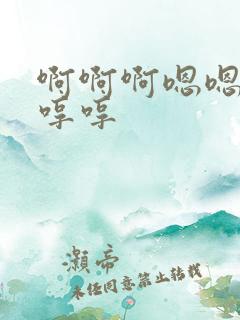 啊啊啊嗯嗯
哼哼
灏帝
未经同意禁止转载